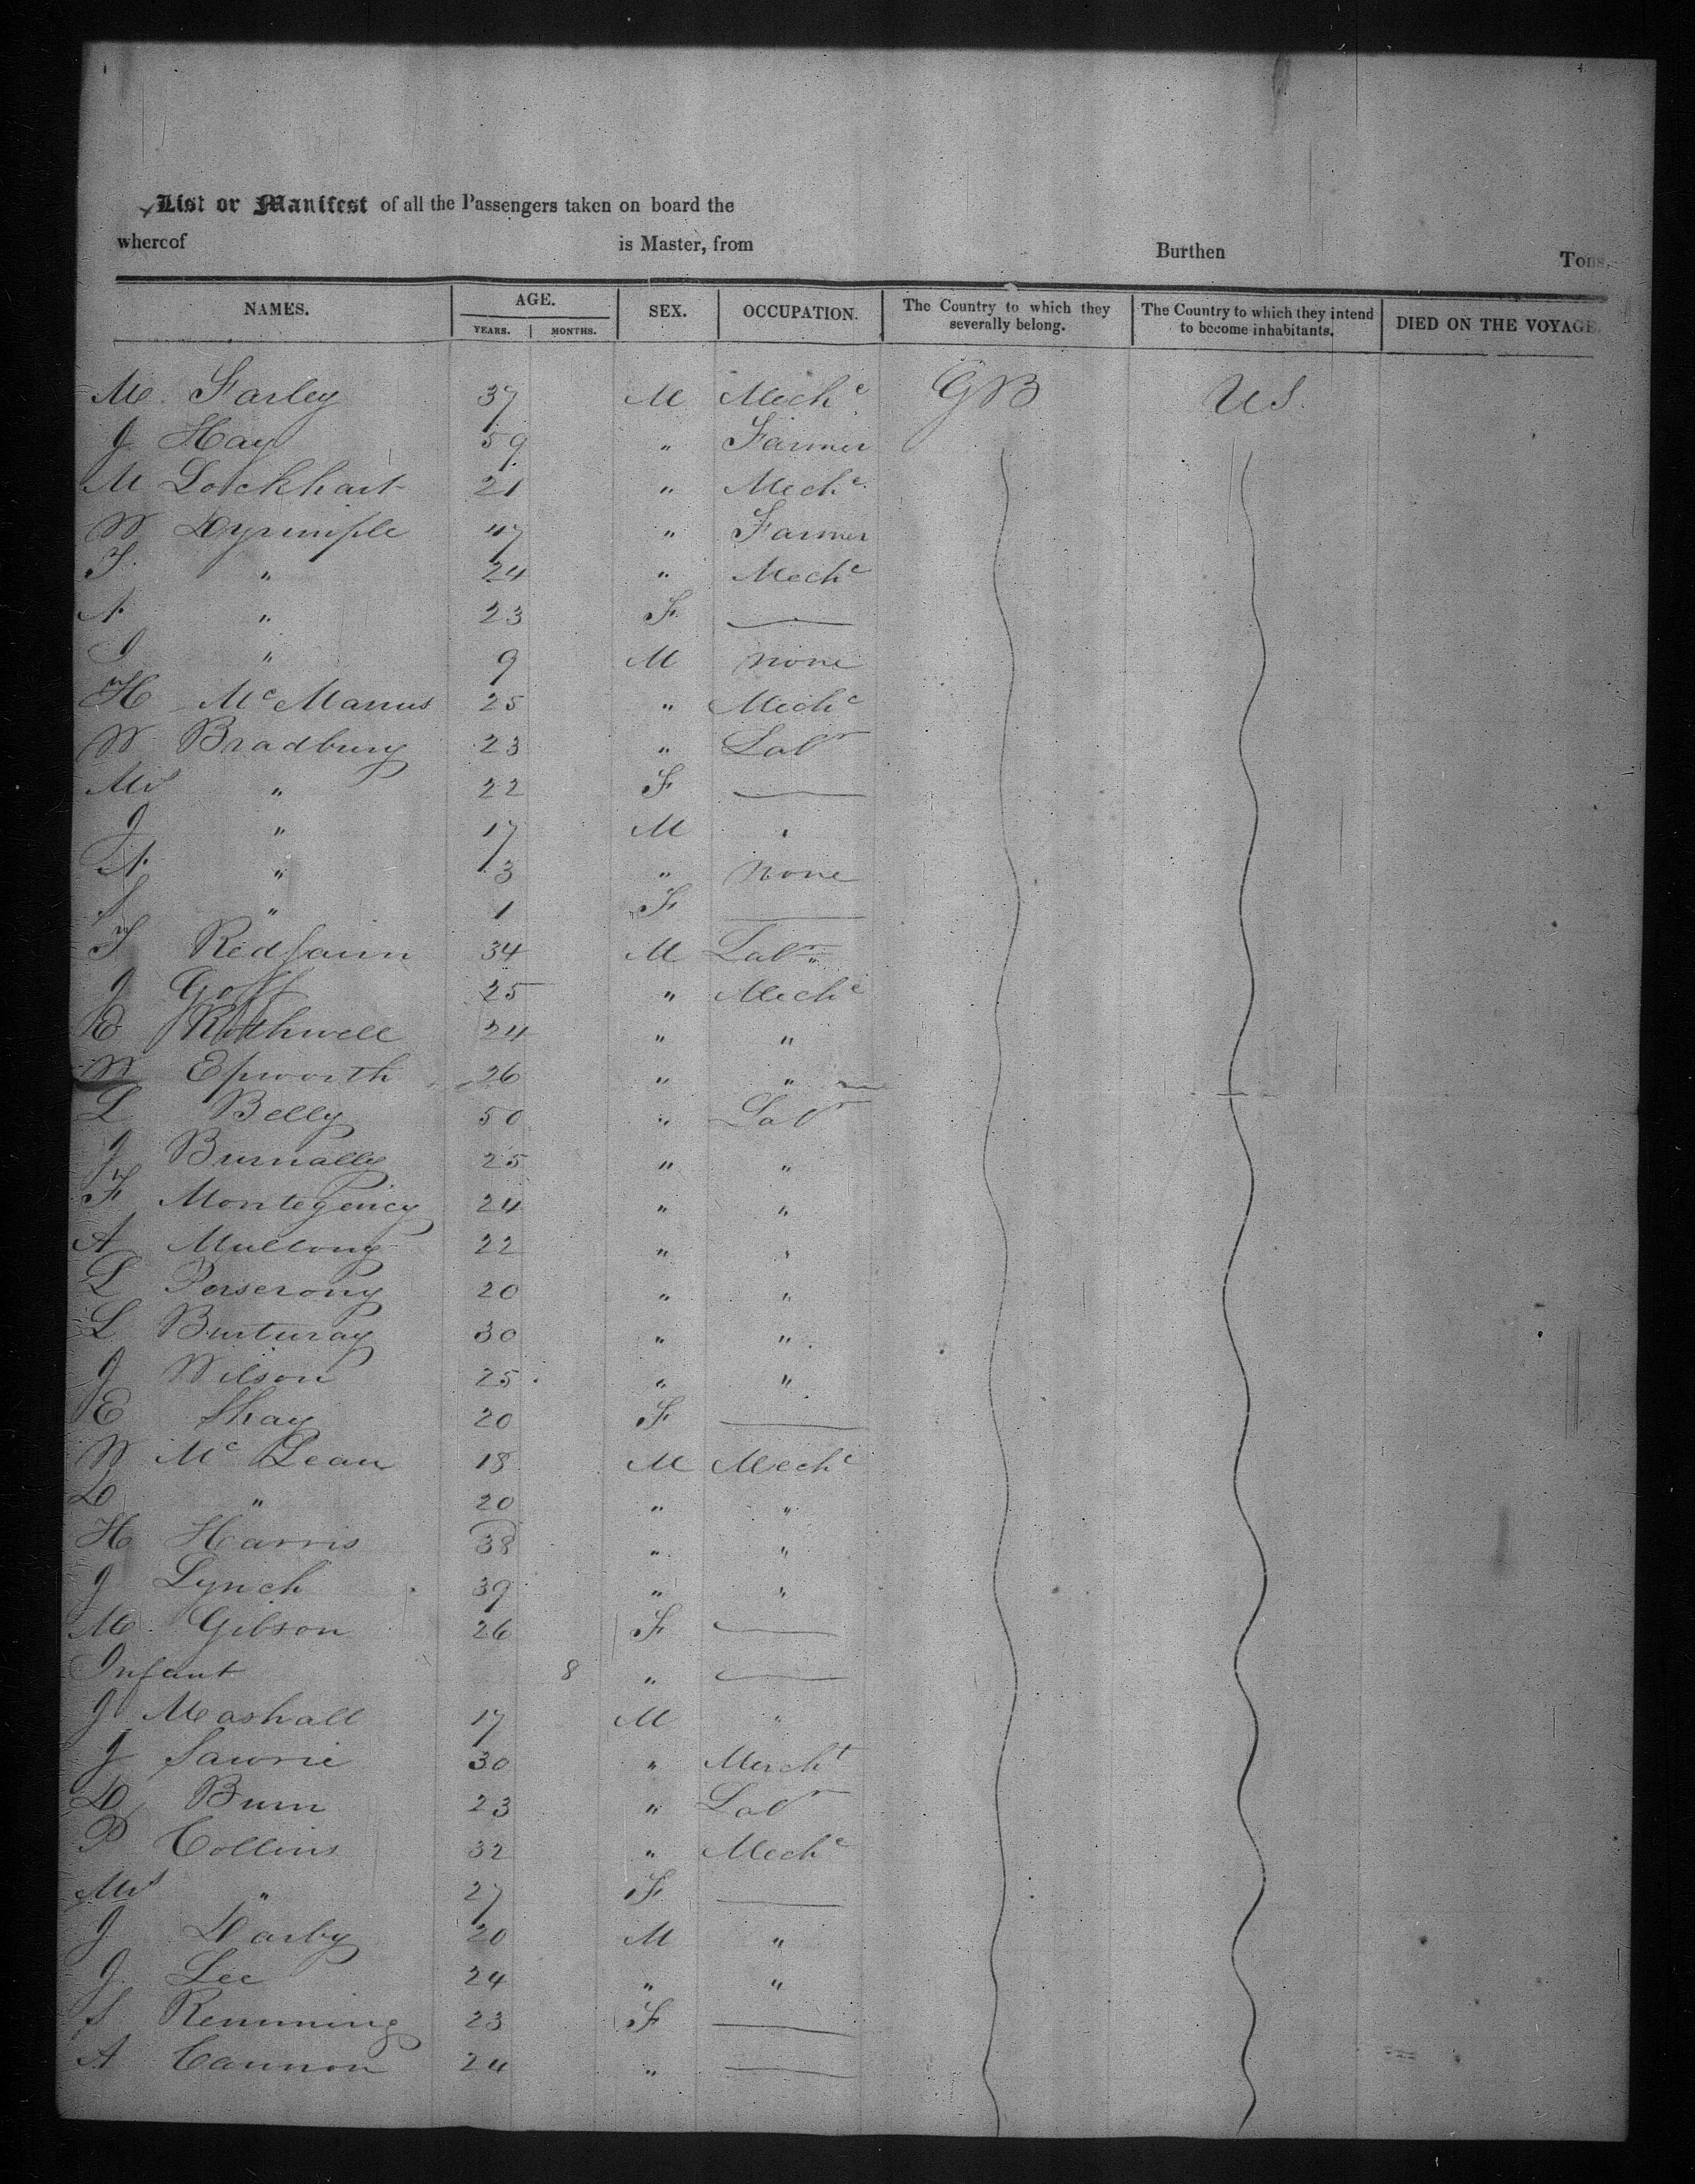 List or Manifest of all the Passengers taken on board the
whereof is Master, from Burthen Tons.
NAMES. AGE. SEX. OCCUPATION. The Country to which they severally belong. The Country to which they intend to become inhabitants. DIED ON THE VOYAGE.
YEARS. MONTHS.
M. Farley 37 M Mechc GB US.
J Hay 59 " Farmer
M Lockhart 21 " Mechc
W Dyrimple 47 " Farmer
T. " 24 " Mechc
A. " 23 F.
J " 9 M none
H McManus 25 " Mechc
W Bradbury 23 " Labr
Mrs " 22 F
J " 17 M "
A. " 3 " none
S " 1 F
T Redfairn 34 M Labr "
J Goff 25 " Mechc
E Rothwell 24 " "
W Epworth 26 " "
L Belly 50 " Labr
J Burnally 25 " "
F Montegency 24 " "
A Mullony 22 " "
L Perserony 20 " "
L Burturay 30 " "
J Wilson 25 " "
E Shay 20 F
W McLean 18 M Mechc
D " 20 " "
H Harris 38 " "
J Lynch 39 " "
M. Gibson 26 F
Infant 8 "
J Mashall 17 M "
J Sawrie 30 " Mercht
D Burn 23 " Labr
P Collins 32 " Mechc
Mrs " 27 F
J Darby 20 M "
J. Lee 24 " "
S Remming 23 F
A Cannon 24 "